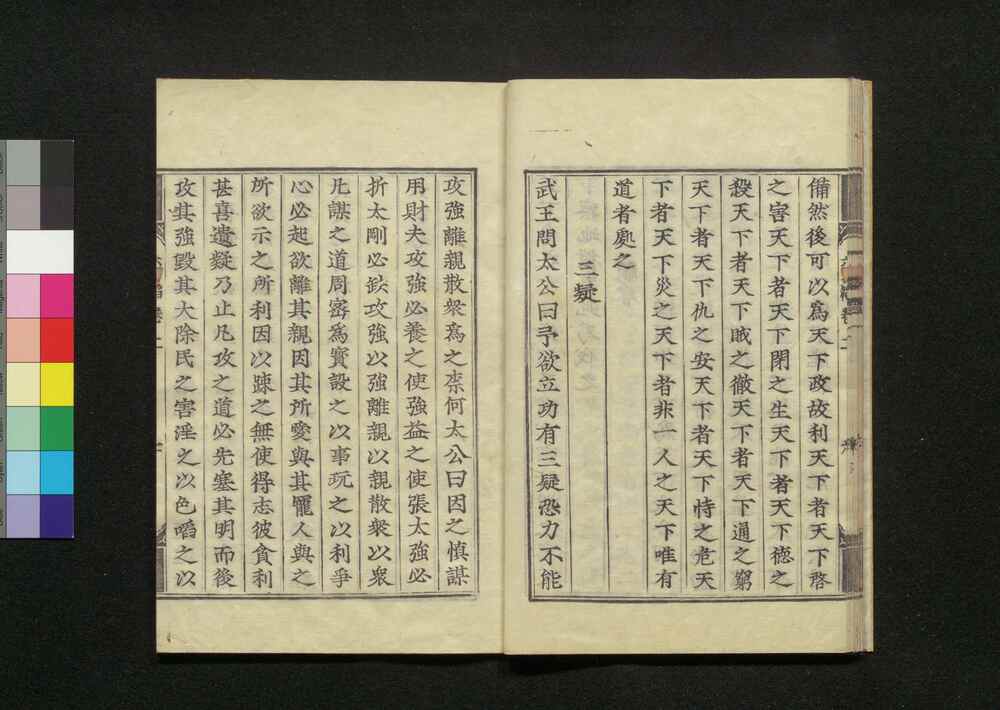 備然後可以爲天下政故利天下者天下啓
之害天下者天下閉之生天下者天下德之
殺天下者天下賊之徹天下者天下通之窮
天下者天下仇之安天下者天下恃之危天
下者天下災之天下者非一人之天下唯有
道者處之
三疑
武王問太公曰予欲立功有三疑恐力不能
攻強離親散衆爲之柰何太公曰因之慎謀
用財夫攻強必養之使強益之使張太強必
折太剛必缺攻強以強離親以親散衆以衆
凡謀之道周密爲寳設之以事玩之以利爭
心必起欲離其親因其所愛與其寵人與之
所欲示之所利因以踈之無使得志彼貪利
甚喜遺疑乃止凡攻之道必先塞其明而後
攻其強毀其大除民之害淫之以色啗之以